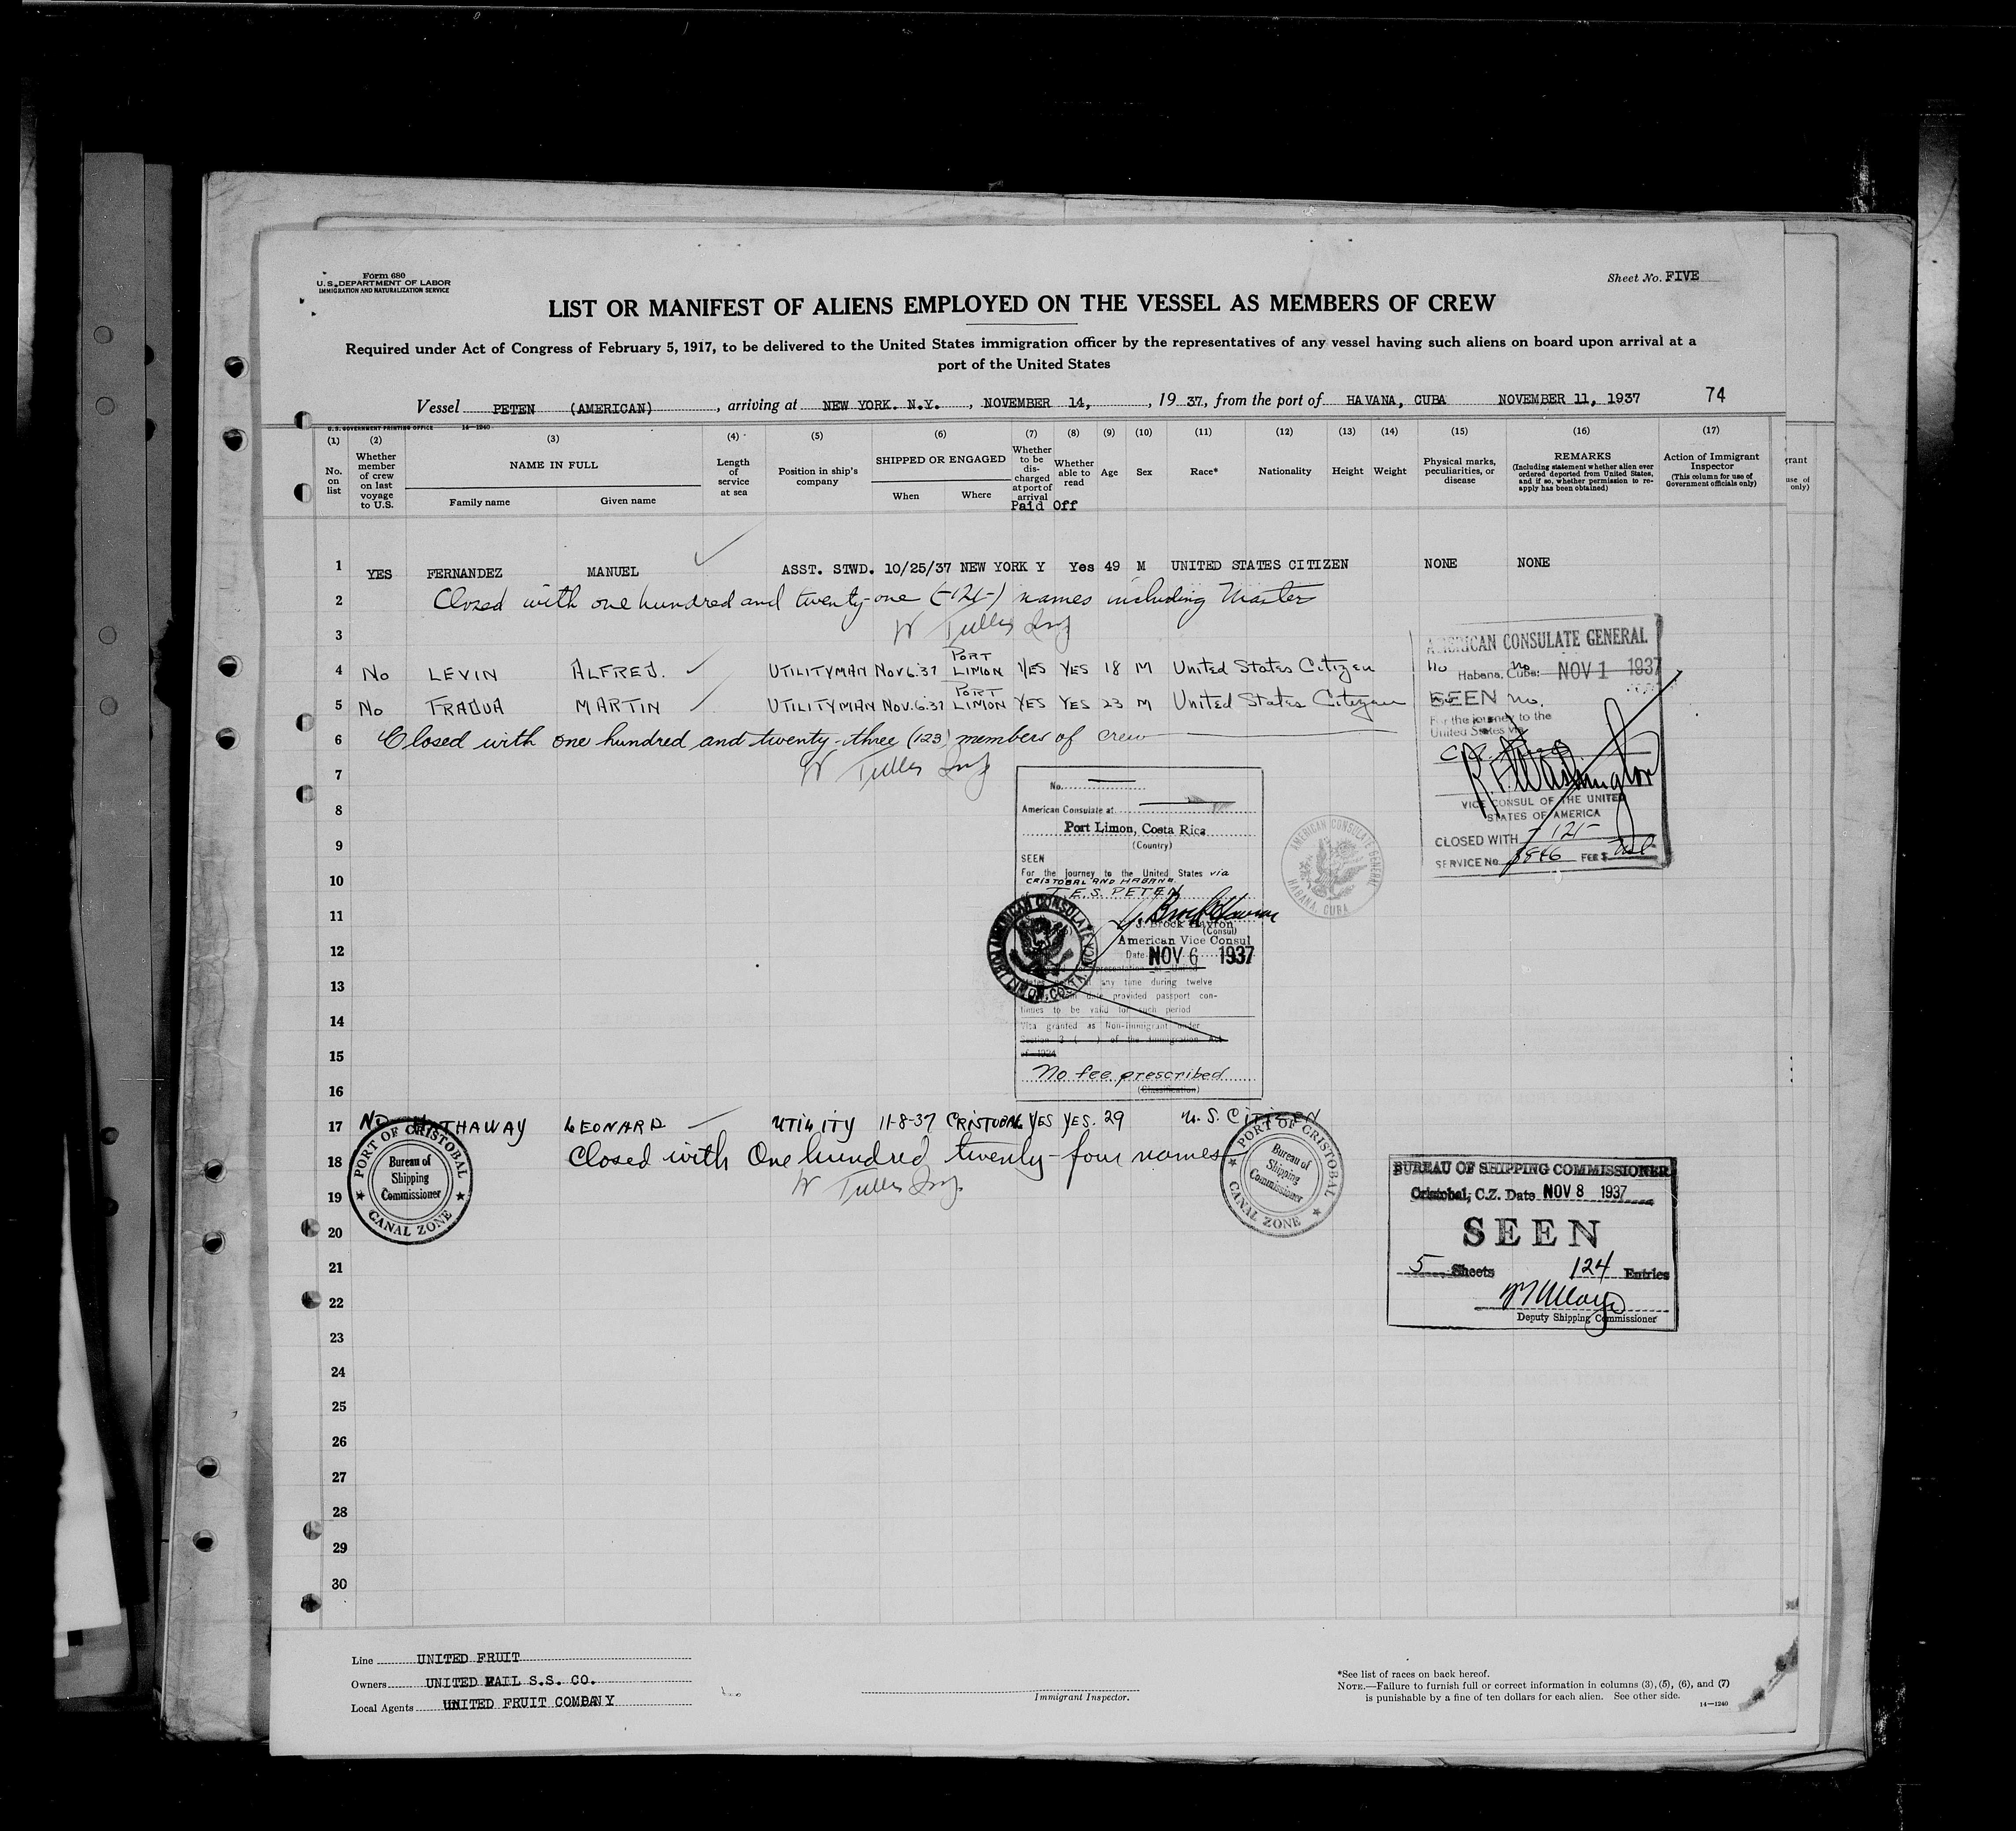 Form 680
U. S. DEPARTMENT OF LABOR
IMMIGRATION AND NATURALIZATION SERVICE
Sheet No. FIVE
LIST OR MANIFEST OF ALIENS EMPLOYED ON THE VESSEL AS MEMBERS OF CREW
Required under Act of Congress of February 5, 1917, to be delivered to the United States immigration officer by the representatives of any vessel having such aliens on board upon arrival at a
port of the United States
Vessel PETEN (AMERICAN), arriving at NEW YORK. N.Y., NOVEMBER 14, , 19 37, from the port of HAVANA, CUBA NOVEMBER 11, 1937 74
U. S. GOVERNMENT PRINTING OFFICE 14—1240
(1) (2) (3) (4) (5) (6) (7) (8) (9) (10) (11) (12) (13) (14) (15) (16) (17)
No. on list
Whether member of crew on last voyage to U.S.
NAME IN FULL
Family name
Given name
Length of service at sea
Position in ship's company
SHIPPED OR ENGAGED
When
Where
Whether to be discharged at port of arrival
Paid Off
Whether able to read
Age
Sex
Race*
Nationality
Height
Weight
Physical marks, peculiarities, or disease
REMARKS
(Including statement whether alien ever ordered deported from United States, and if so, whether permission to reapply has been obtained)
Action of Immigrant Inspector
(This column for use of Government officials only)
grant
use of
only)
1 YES FERNANDEZ MANUEL ASST. STWD. 10/25/37 NEW YORK Y Yes 49 M UNITED STATES CITIZEN NONE NONE
2 Closed with one hundred and twenty-one (-121-) names including Master
3
4 No LEVIN ALFRED. UTILITYMAN Nov 6.37 PORT LIMON YES YES 18 M United States Citizen no no.
5 No FRADUA MARTIN UTILITYMAN Nov.6.37 PORT LIMON YES YES 23 M United States Citizen no.
6 Closed with one hundred and twenty-three (123) members of crew
7
8
9
10
11
12
13
14
15
16
17 No HATHAWAY LEONARD UTILITY 11-8-37 CRISTOBAL YES YES. 29 U. S. CITIZEN
18 Closed with One hundred twenty-four names
19
20
21
22
23
24
25
26
27
28
29
30
AMERICAN CONSULATE GENERAL
Habana, Cuba: NOV 1 1937
SEEN
For the journey to the
United States via
R. F. Washington
VICE CONSUL OF THE UNITED
STATES OF AMERICA
CLOSED WITH -121-
SERVICE No. FEE $
No.
American Consulate at
Port Limon, Costa Rica
(Country)
SEEN
For the journey to the United States via
CRISTOBAL AND HABANA
T.E.S. PETEN
J. Brock Havron
(Consul)
American Vice Consul
Date NOV 6 1937
any time during twelve
date provided passport con-
tinues to be valid for such period
Visa granted as Non-Immigrant under
Section 3 ( ) of the Immigration Act
of 1924
No fee prescribed
(Classification)
AMERICAN CONSULATE PORT LIMON, COSTA RICA
AMERICAN CONSULATE GENERAL
HABANA, CUBA
PORT OF CRISTOBAL
Bureau of
Shipping
Commissioner
CANAL ZONE
PORT OF CRISTOBAL
Bureau of
Shipping
Commissioner
CANAL ZONE
BUREAU OF SHIPPING COMMISSIONER
Cristobal, C.Z. Date NOV 8 1937
SEEN
5 Sheets 124 Entries
Deputy Shipping Commissioner
Line UNITED FRUIT
Owners UNITED MAIL S.S. CO.
Local Agents UNITED FRUIT COMPANY
Immigrant Inspector.
*See list of races on back hereof.
NOTE.—Failure to furnish full or correct information in columns (3), (5), (6), and (7)
is punishable by a fine of ten dollars for each alien. See other side.
14—1240